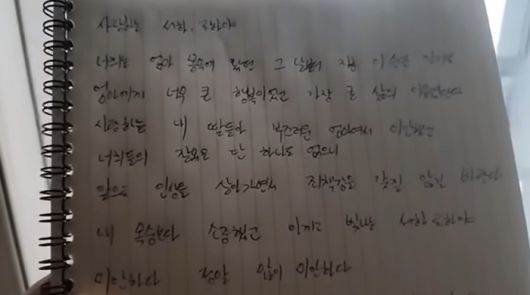 사랑하는 서하, 로하야
너희는 엄마 뱃속에 왔던 그 날부터 지금 이 순간 까지도
엄마에게 너무 큰 행복이었고 가장 큰 삶의 이유였단다
사랑하는 내 딸들아 부족한 엄마여서 미안했고
너희들의 잘못은 단 하나도 없으니
앞으로 인생을 살아가면서 죄책감은 갖질 않길 바란다
내 목숨보다 소중했고 아끼고 빛났던 서하 로하야
미안하다 정말 많이 미안하다